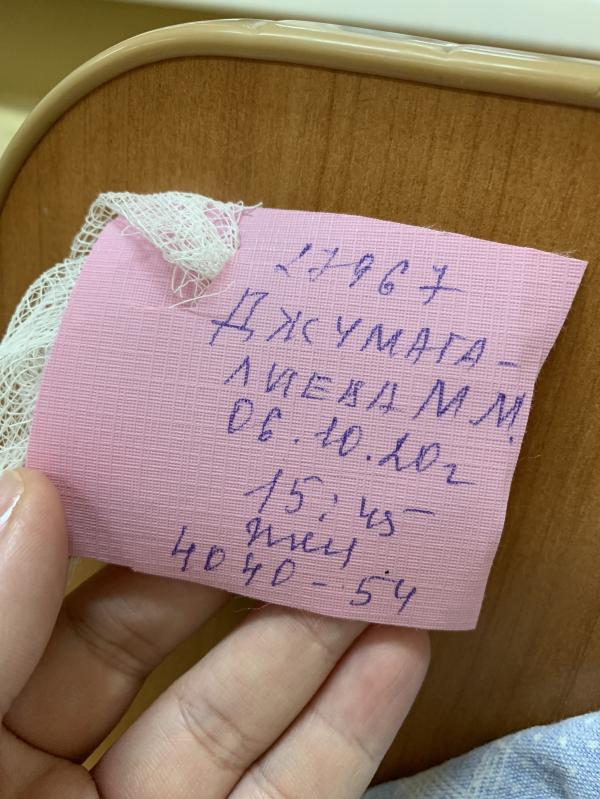 27967
ДЖУМАГА-
ЛИЕВА М М.
06.10.20г
15:45
жен
4040-54